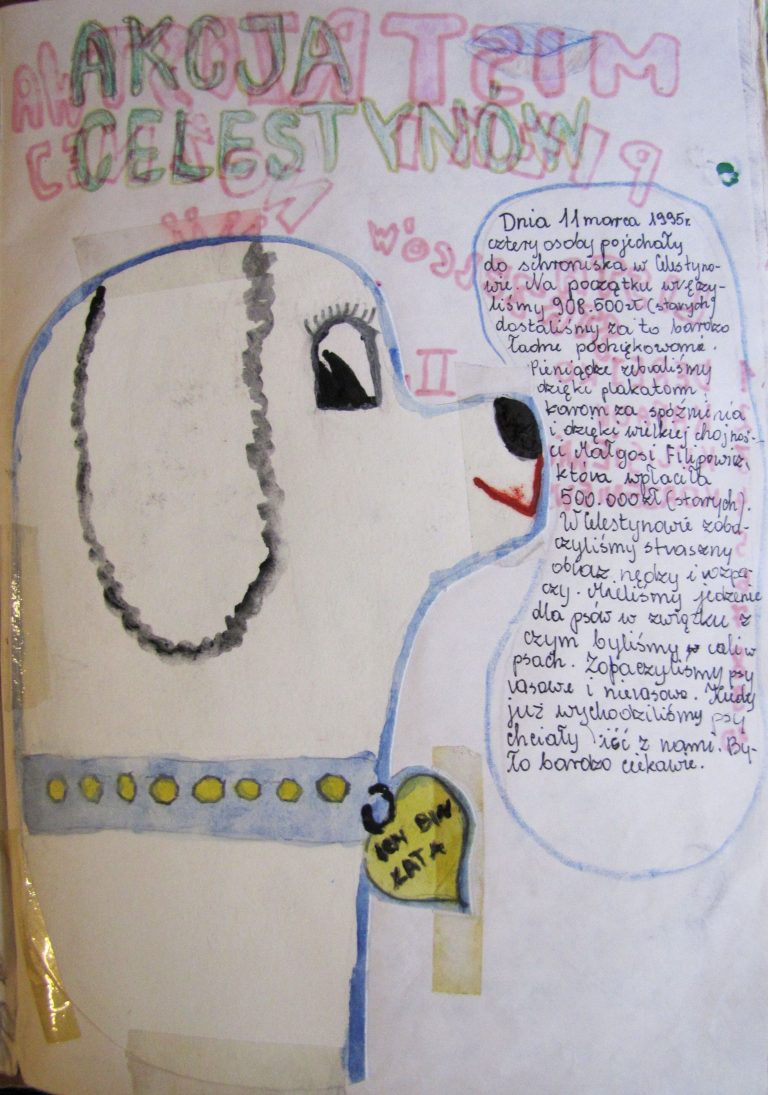 AKCJA
CELESTYNÓW
Dnia 11 marca 1995r.
cztery osoby pojechały
do schroniska w Celestyno-
wie. Na początku wręczy-
liśmy 908.500zł (starych)
dostaliśmy za to bardzo
ładne podziękowanie.
Pieniądze zebraliśmy
dzięki plakatom
karom za spóźnienia
i dzięki wielkiej chojnoś-
ci Małgosi Filipowicz,
która wpłaciła
500.000zł (starych).
W Celestynowie zoba-
czyliśmy straszny
obraz nędzy i rozpa-
czy. Mieliśmy jedzenie
dla psów w związku z
czym byliśmy cali w
psach. Zobaczyliśmy psy
rasowe i nierasowe. Kiedy
już wychodziliśmy psy
chciały iść z nami. By-
ło bardzo ciekawie.
ICH BIN
KATA